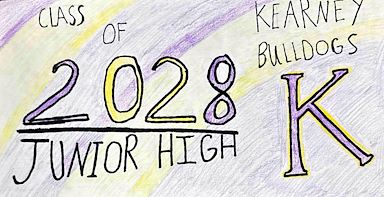 CLASS
OF
2028
JUNIOR HIGH
KEARNEY
BULLDOGS
K